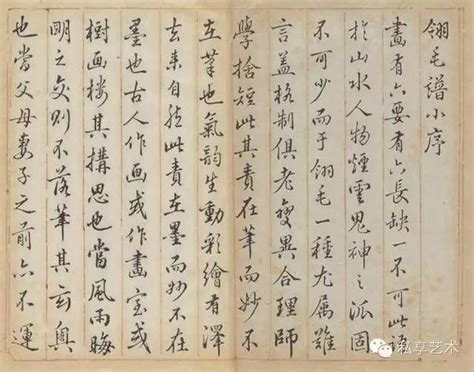 翎毛譜小序
畫有六要有六長缺一不可此語
於山水人物煙雲鬼神之派固
不可少而于翎毛一種尤属難
言蓋格制俱老變異合理師
學捨短此其責在筆而妙不
在筆也氣韵生動彩繪有澤
去来自然此責在墨而妙不在
墨也古人作画或作畫室或
樹画楼其搆思也當風雨晦
明之交則不落筆其玄奥
也當父母妻子之前亦不運
私享艺术